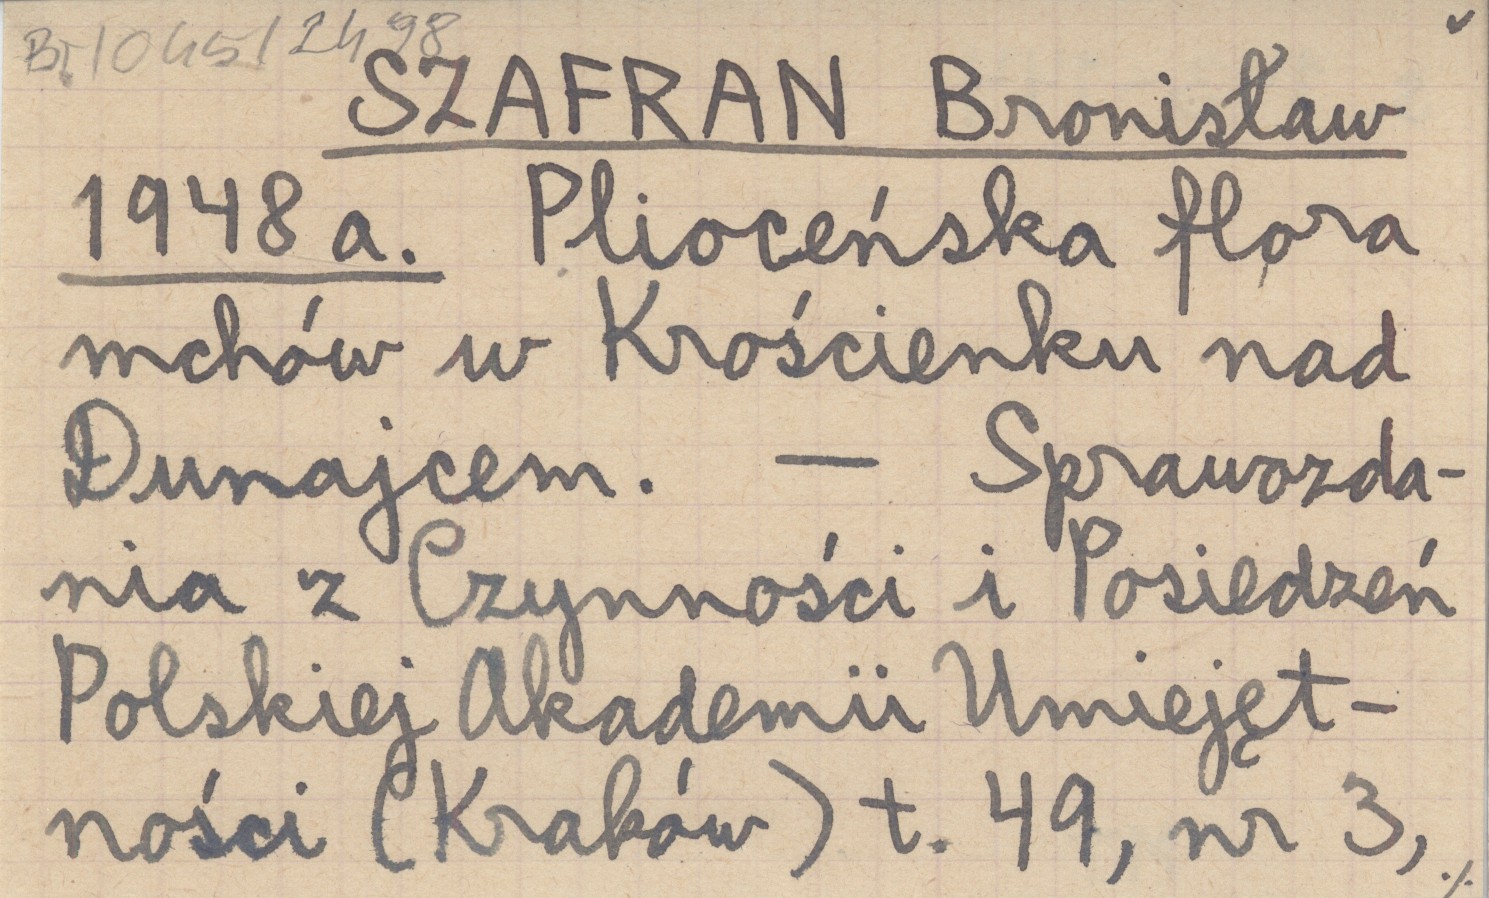 Br/045/2498
SZAFRAN Bronisław
1948a. Plioceńska flora
mchów w Krościenku nad
Dunajcem. — Sprawozda-
nia z Czynności i Posiedzeń
Polskiej Akademii Umiejęt-
ności (Kraków) t. 49, nr 3,
./.